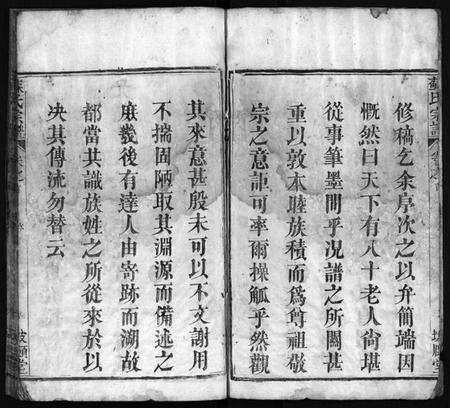 蘇氏宗譜
修稿乞余序次之以弁簡端因
慨然曰天下有八十老人尚堪
從事筆墨間乎況譜之所關甚
重以敦本睦族積而為尊祖敬
宗之意詎可率爾操觚乎然觀
其來意甚殷未可以不文謝用
不揣固陋取其淵源而備述之
庶幾後有達人由寄跡而溯故
都當共識族姓之所從來於以
决其傳流勿替云
蘇氏宗譜